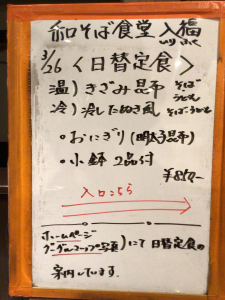 和そば食堂 入福
いり ふく
3/26 〈日替定食〉
温）きざみ昆布 そば うどん
冷）冷したぬき風 そば・うどん
・おにぎり（明太子昆布）
・小鉢 2品付
¥850-
入口こちら
ホームページ
グーグルマップ（写真）にて 日替定食の
案内しています。